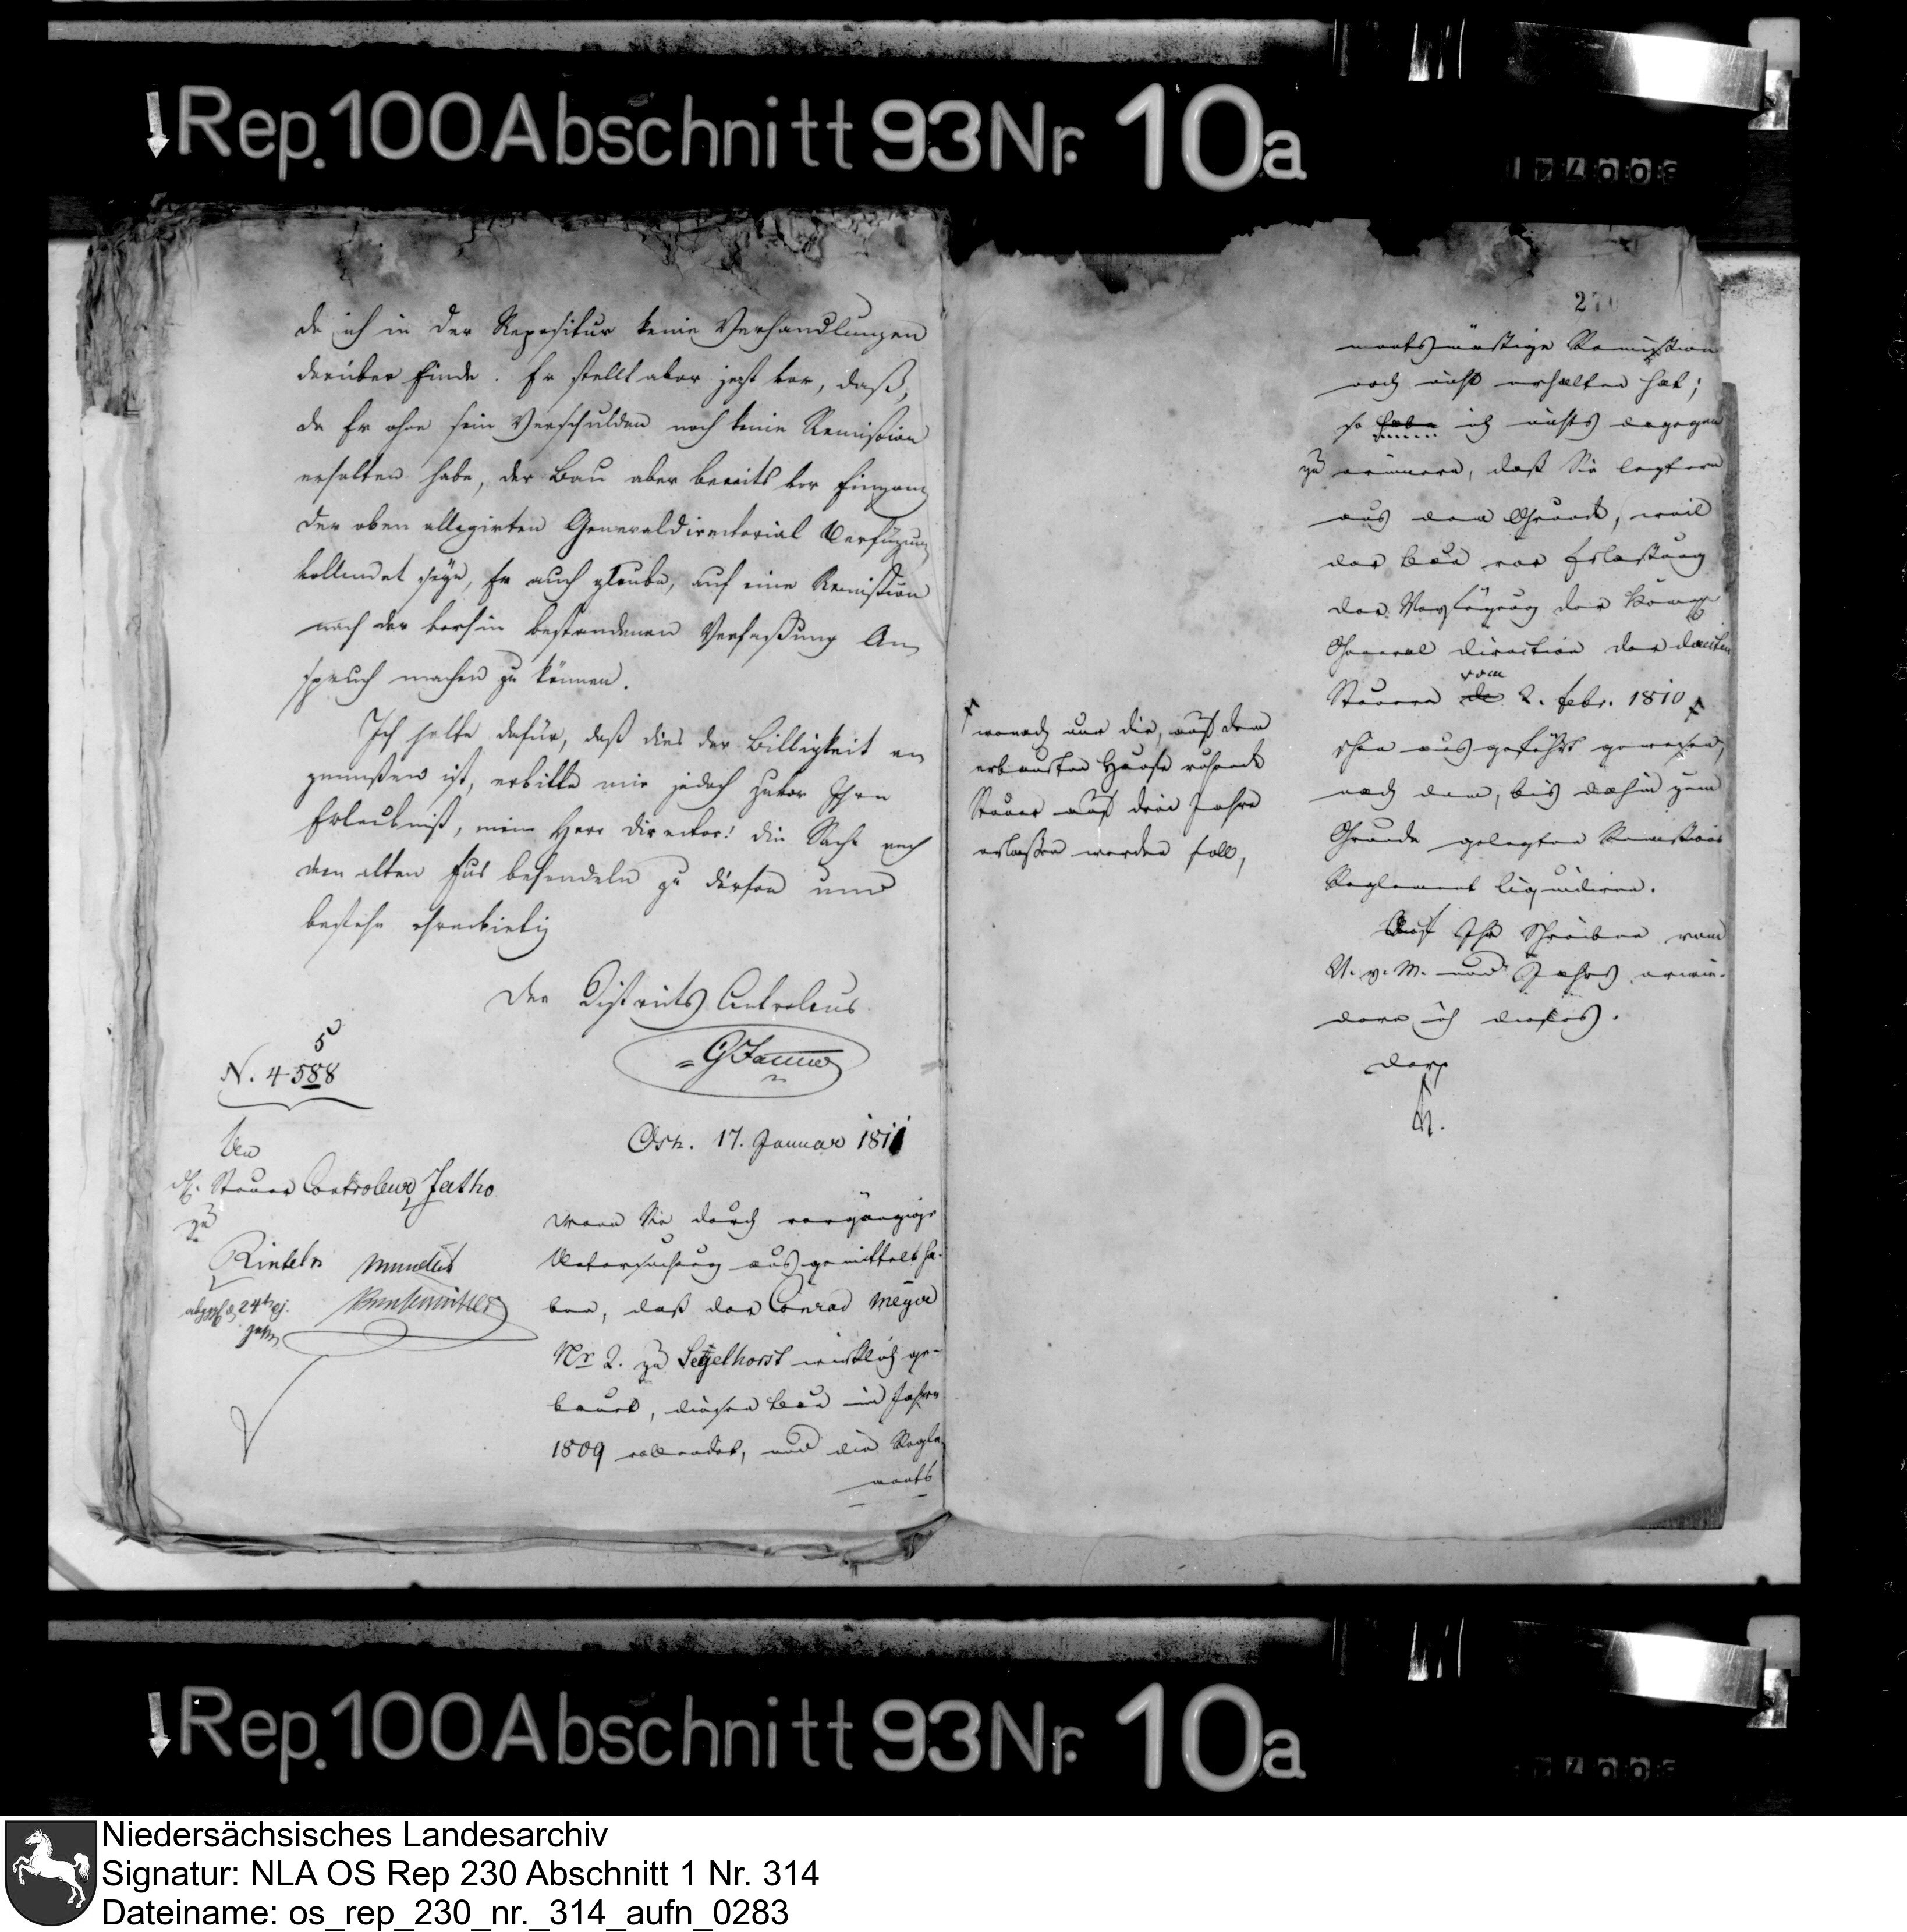 Rep. 100 Abschnitt 93 Nr. 10a
da ich in der Repositur keine Verhandlungen
darüber finde. Er stellt aber jezt vor, daß,
da Er ohne sein Verschulden noch keine Remission
erhalten habe, der Bau aber bereits vor Eingang
der oben allegirten Generaldirectorial Verfügung
vollendet seye, Er auch glaube, auf eine Remission
nach der vorhin bestandenen Verfaßung An
spruch machen zu können.
Ich halte dafür, daß dies der Billigkeit an
gemeßen ist, erbitte mir jedoch zuvor Ihre
Erlaubniß, mein Herr Director! die Sache nach
dem alten Fus behandeln zu dürfen und
bestehe ehrerbietig
Der Districts Controleur
5
N. 4588
Osn. 17. Januar 1811
An
d. Steuer Controleur Jatho
zu
Rinteln
mundirt
24t ej.
Wenn Sie durch vorgängige
Untersuchung ausgemittelt ha-
ben, daß der Conrad Meyer
Nr 2. zu Segelhorst wirklich ge-
bauet, diesen Bau im Jahre
1809 vollendet, und die Regle
ments
270
mentsmäßige Remission
noch nicht erhalten hat;
so habe ich nichts dagegen
zu erinnern, daß Sie leztere
aus dem Grunde, weil
der Bau vor Erlaßung
der Verfügung der Königl
General Direction der directen
Steuern de vom 2. Febr. 1810
wonach nur die, auf dem
erbaueten Hause ruhende
Steuer auf drei Jahre
erlaßen werden soll,
schon ausgeführt gewesen,
nach dem, bis dahin zum
Grunde gelegten Remissions
Reglement liquidiren.
Auf Ihr Schreiben vom
v. M. und Jahrs erwie-
dere ich dieses.
Rep. 100 Abschnitt 93 Nr. 10a
Niedersächsisches Landesarchiv
Signatur: NLA OS Rep 230 Abschnitt 1 Nr. 314
Dateiname: os_rep_230_nr._314_aufn_0283